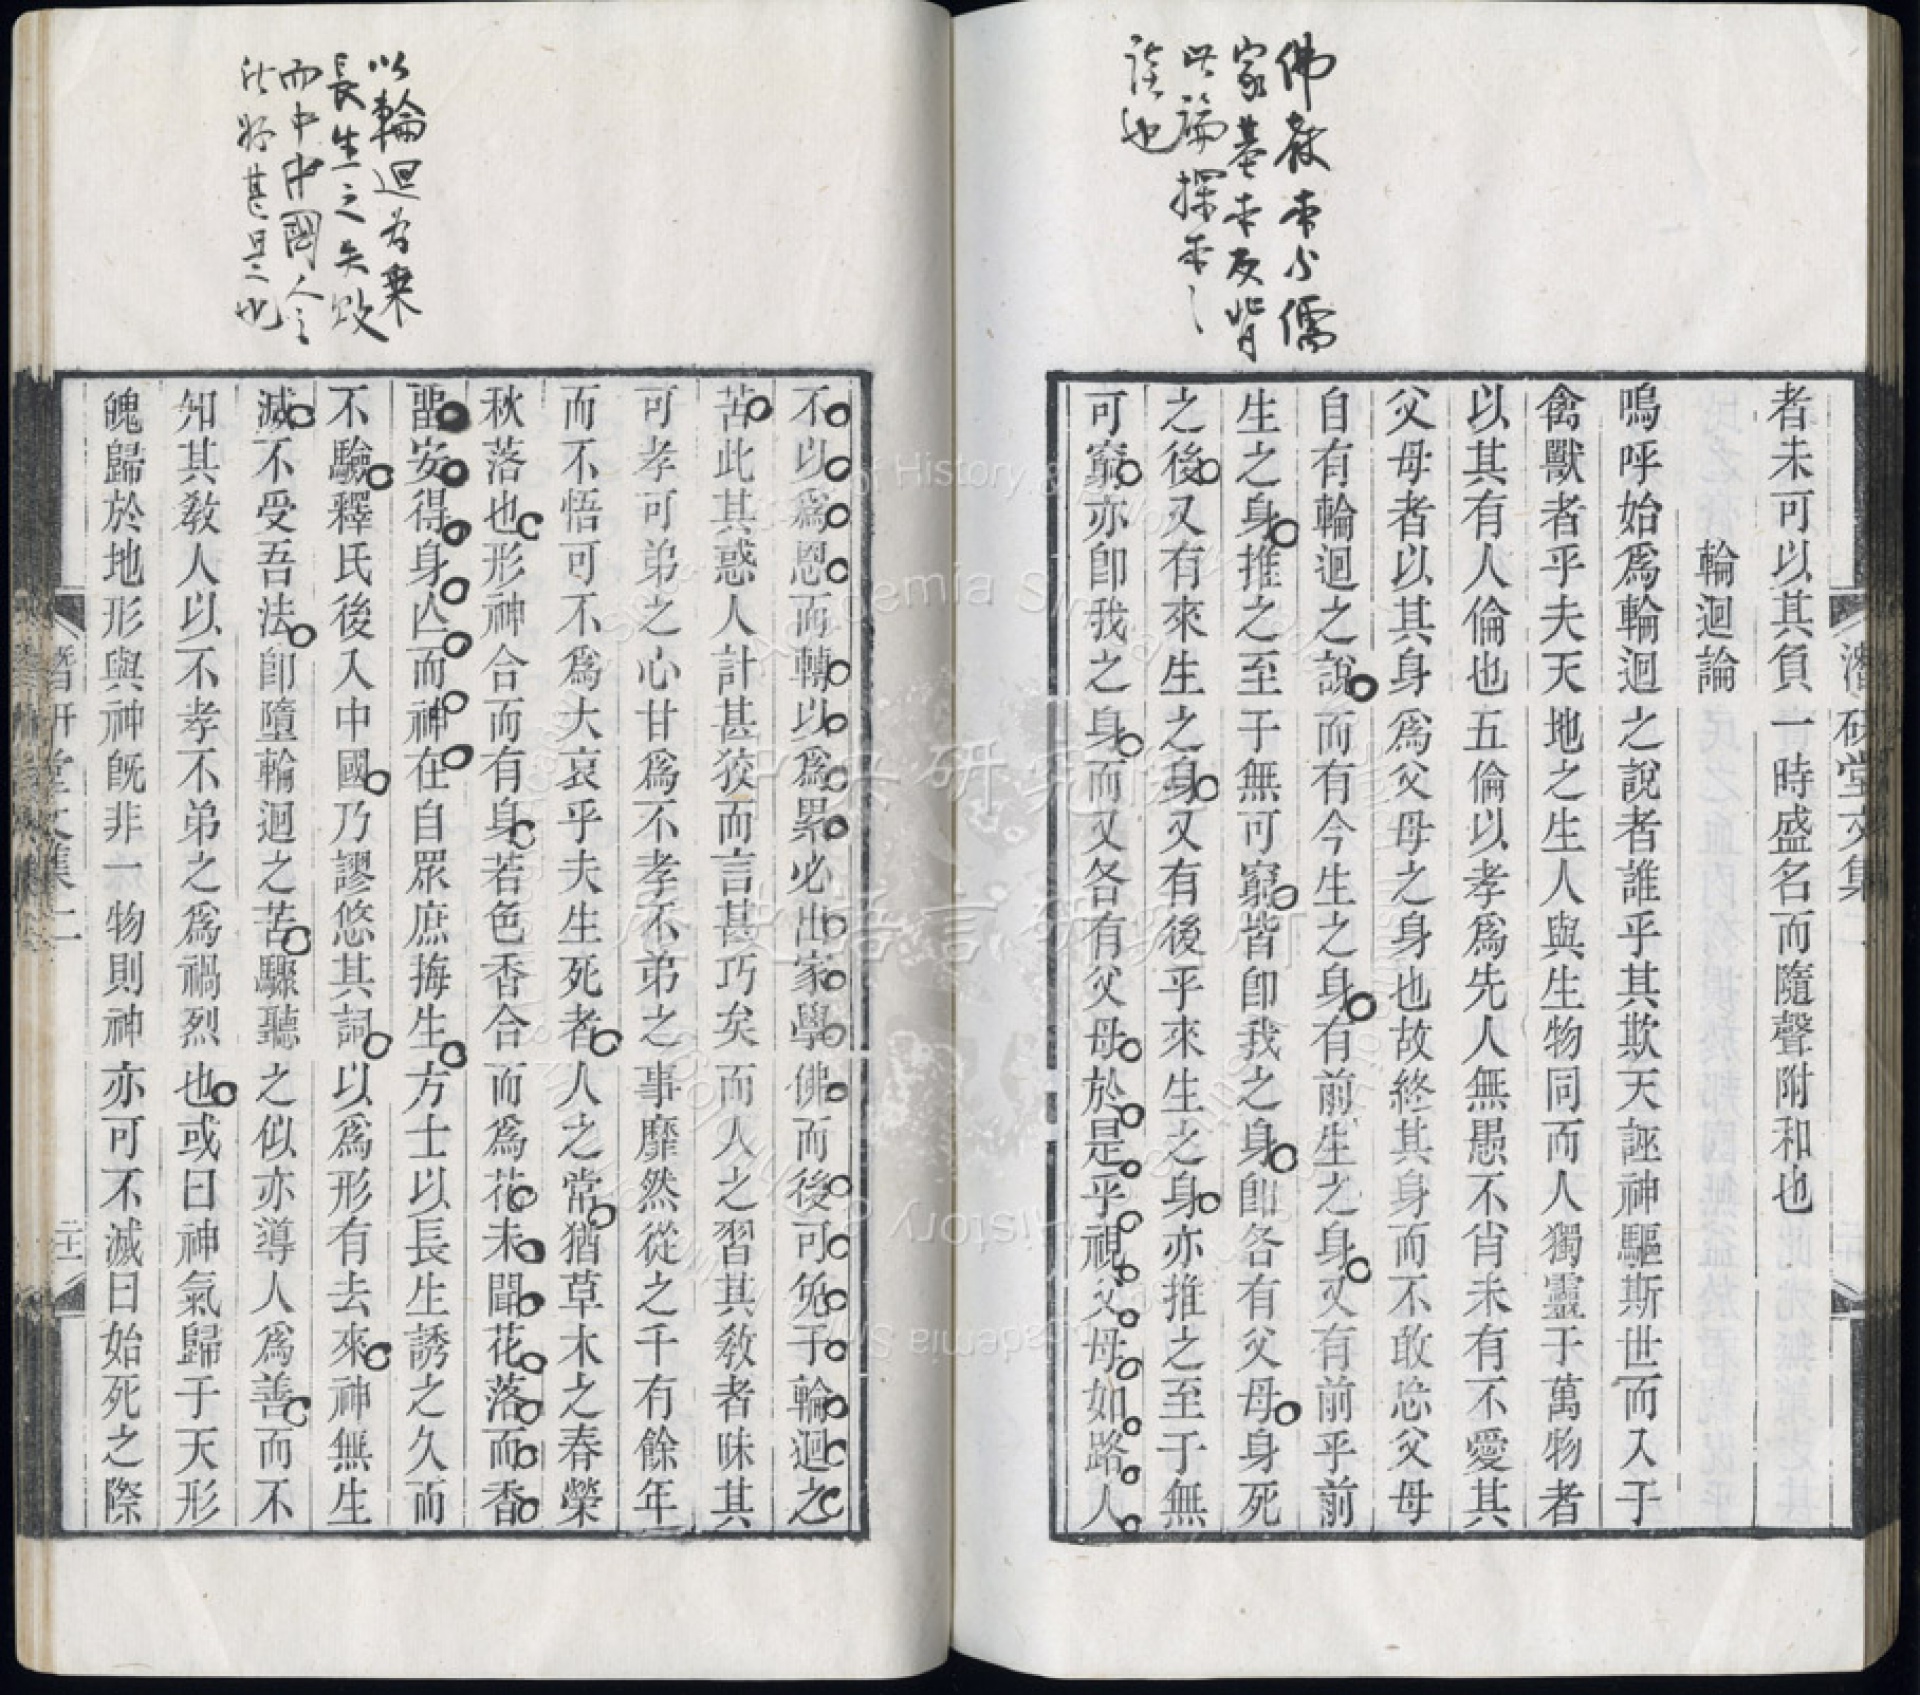 佛教本與儒
家基本反背
此論探本之
談也
者未可以其負一時盛名而隨聲附和也
輪迴論
嗚呼始爲輪迴之說者誰乎其欺天誣神驅斯世而入于
禽獸者乎夫天地之生人與生物同而人獨靈于萬物者
以其有人倫也五倫以孝爲先人無愚不肖未有不愛其
父母者以其身爲父母之身也故終其身而不敢忘父母
自有輪迴之說而有今生之身有前生之身又有前乎前
生之身推之至于無可窮皆卽我之身卽各有父母身死
之後又有來生之身又有後乎來生之身亦推之至于無
可窮亦卽我之身而又各有父母於是乎視父母如路人
潛研堂文集
以輪迴爲棄
長生之失敗
而中中國人之
也
不以爲恩而轉以爲累必出家學佛而後可免于輪迴之
苦此其惑人計甚狡而言甚巧矣而人之習其敎者昧其
可孝可弟之心甘爲不孝不弟之事靡然從之千有餘年
而不悟可不爲大哀乎夫生死者人之常猶草木之春榮
秋落也形神合而有身若色香合而爲花未聞花落而香
畱安得身亾而神在自眾庶挴生方士以長生誘之久而
不驗釋氏後入中國乃謬悠其詞以爲形有去來神無生
滅不受吾法卽墮輪迴之苦驟聽之似亦導人爲善而不
知其敎人以不孝不弟之爲禍烈也或曰神氣歸于天形
魄歸於地形與神旣非一物則神亦可不滅曰始死之際
潛研堂文集二 二十一